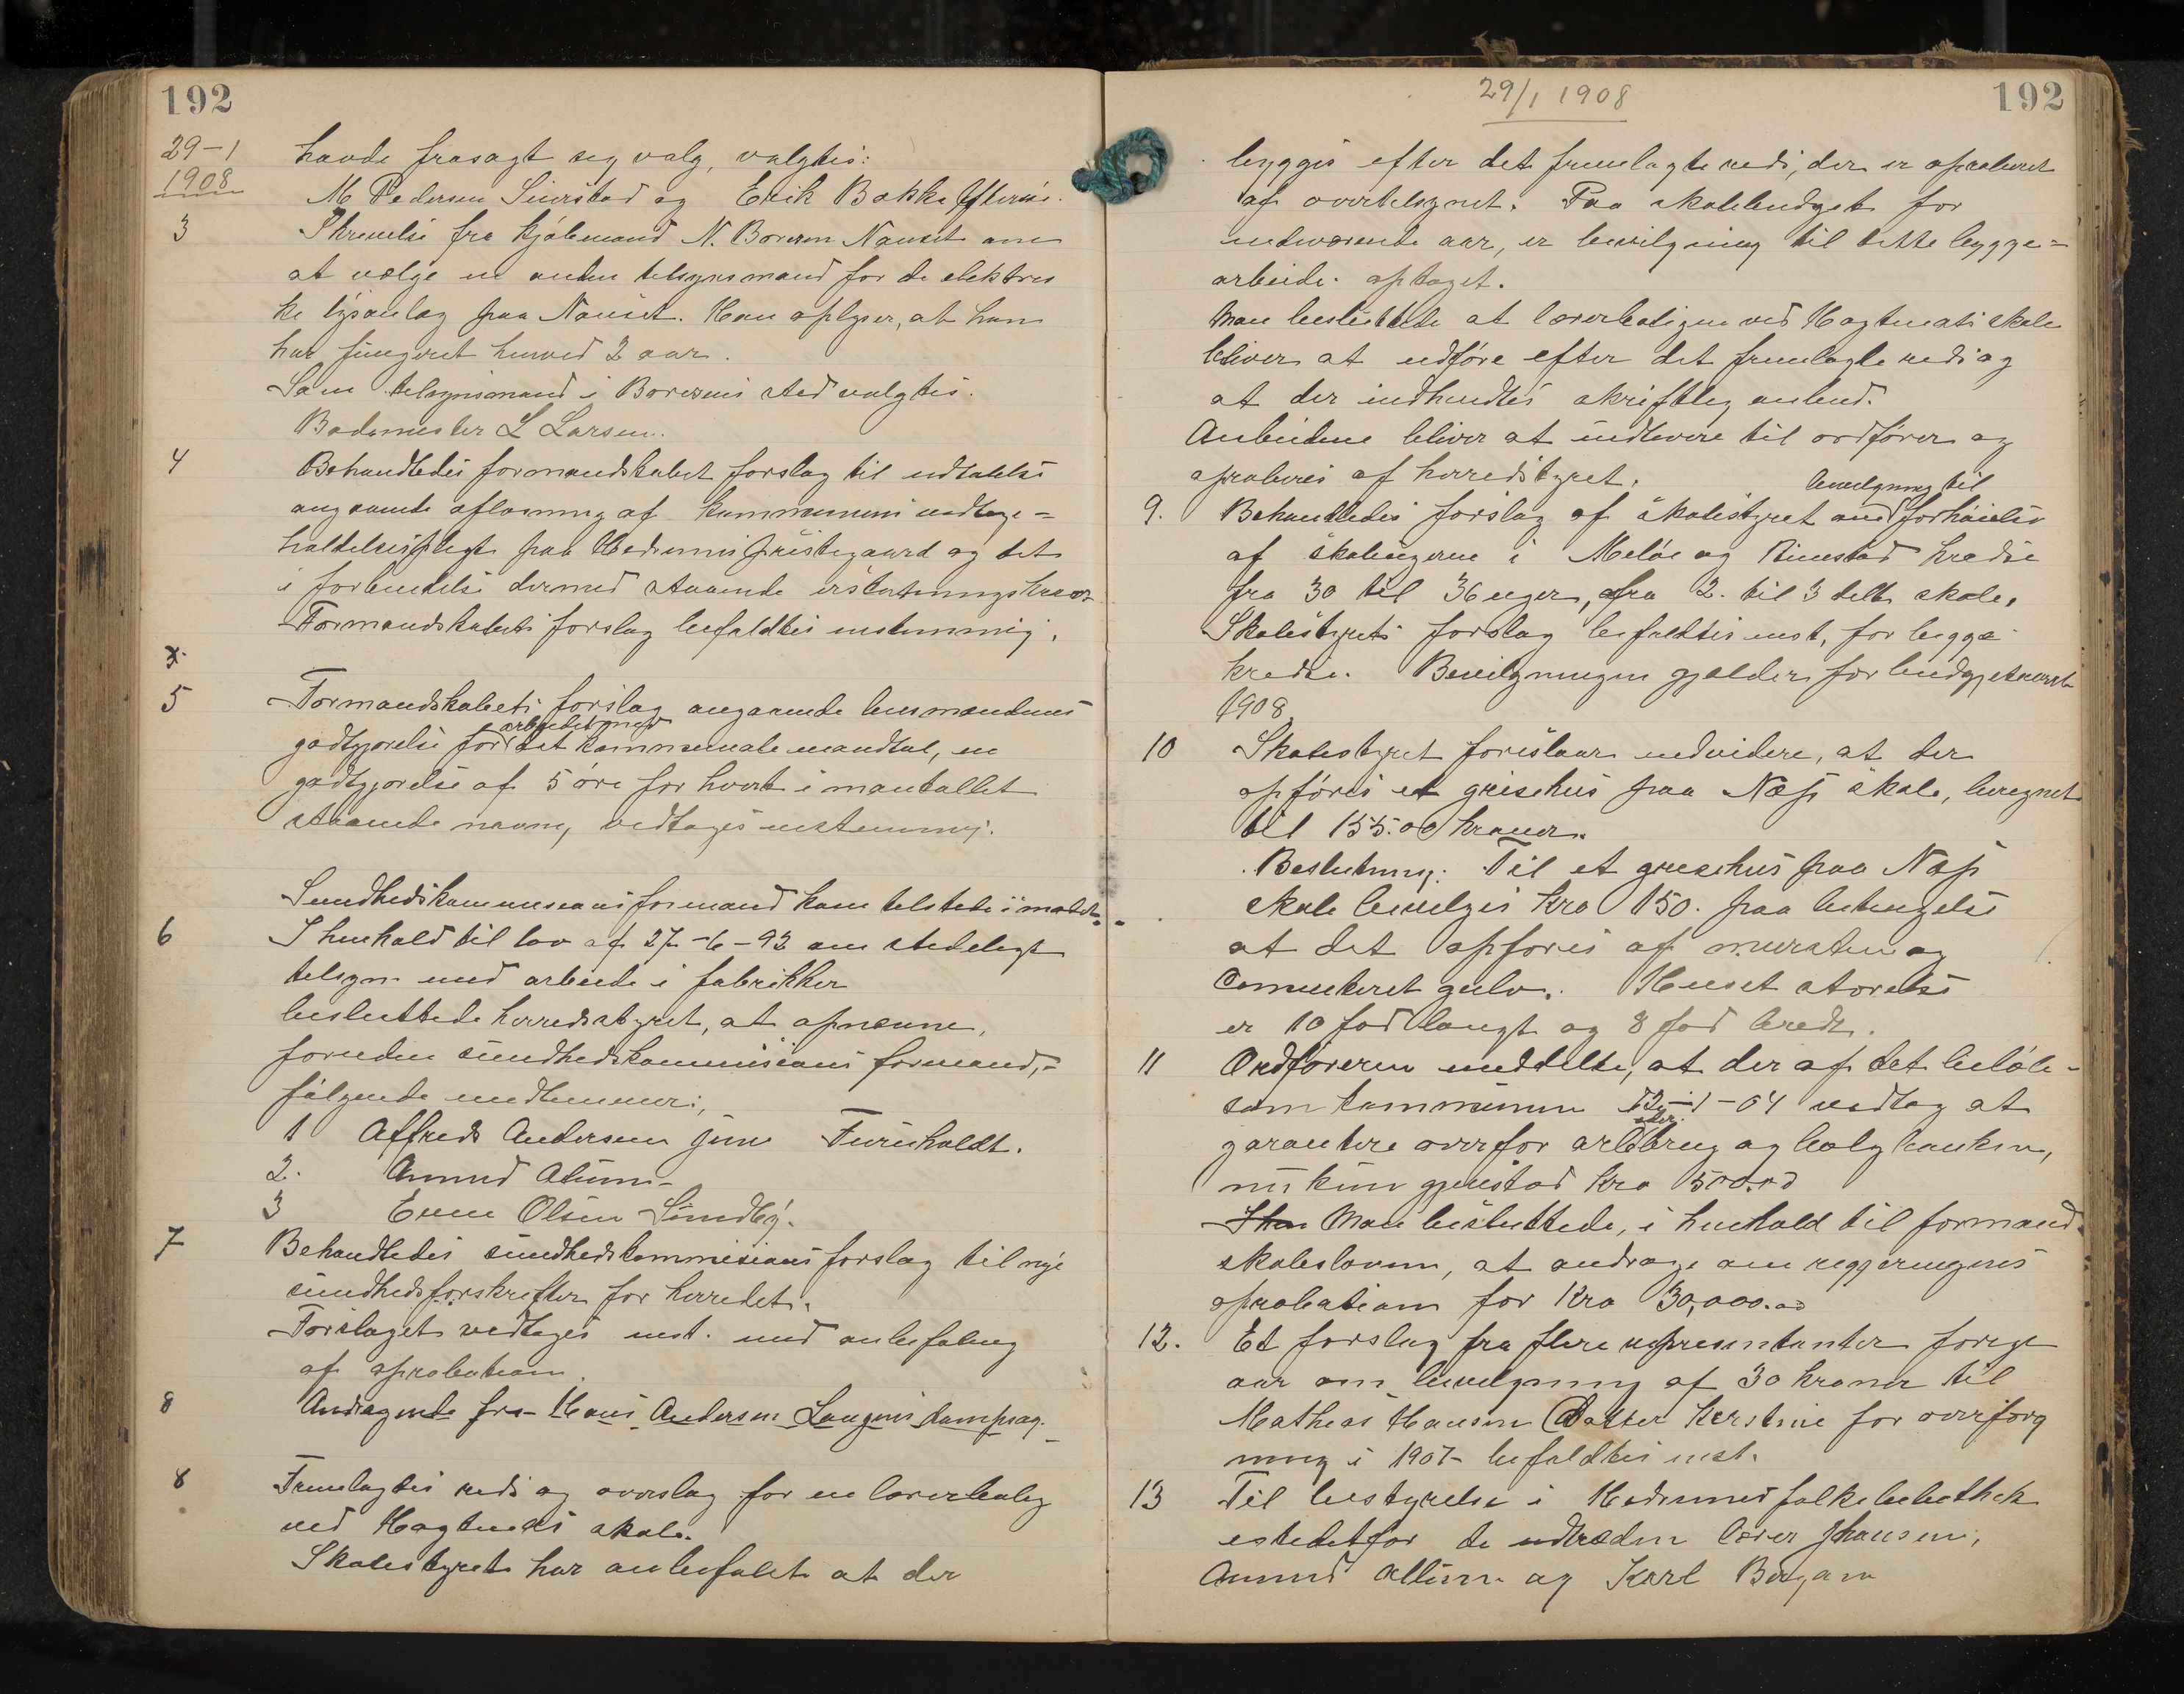 192
29-1
1908
havde frasagt seg valg, valgtes:
M Pedersen Seierstad og Erik Bakke
3 Skrivelse fra kjøbmand N. Boresen Nauset om
at vælge en anden tilsynsmand for de elektris
ke lysanlæg paa Nauset. Han oplyser, at han
har fungeret henved 2 aar.
Som tilsynsmand i Boresens sted valgtes.
Bademester L Larsen.
4 Behandledes formandskabet forslag til udtalelse
angaaende afløsning af kommunens vedlige-
holdelsespligt paa Hedrums præstegaard og det
i forbindelse dermed staaende erstatningskrav
Formandskabets forslag befaldtes enstemmig.
x.
5 Formandskabets forslag angaaende lensmandens
arbeidet med
godtgjørelse for det kommunale mandtal, en
godtgjørelse af 5 øre for hvert i mantallet
staaende navn, vedtages enstemmig.
Sundhedskommissions formand kom tilstede i mødet.
6 I henhold til lov af 27-6-92 om stedeligt
tilsyn med arbeide i fabrikker
besluttede herredstyret, at opnævne,
foruden sundhedskommissions formand,
følgende medlemmer:
1 Alfred Andersen jun Furuholdt.
2. Amund Alum
3 Even Olsen Sundby.
7 Behandledes sundhedskommissions forslag til nye
sundhedsforskrifter for herredet.
Forslaget vedtages enst. med anbefaling
af aprobation.
8 Andragende fra Hans Andersen Laugens dampsag.
8 Fremlagtes rids og overslag for en lærerbolig
ved Hagtneds skole.
Skolestyret har anbefalet at der
29/1 1908
192
bygges efter det fremlagte rids, der er aproberet
af overtilsynet. Paa skolebudget for
nedværende aar, er bevilgning til dette bygge-
arbeide optaget.
Man besluttede at lærerboligen ved Hagtneds skole
bliver at udføre efter det fremlagte rids og
at der indhendtes skriftleg anbud.
Anbudene bliver at indlevere til ordfører og
aproberes af herredstyret.
bevilgning til
9. Behandledes forslag af skolestyret om forhøielse
af skoleugerne i Meløe og Rimstad kredse
fra 30 til 36 uger, fra 2. til 3 delt skole.
Skolestyrets forslag befaldtes enst, for begge
kredse. Bevilgningen gjælder for budgjetaaret
1908
10 Skolestyret foreslaar endvidere, at der
opføres et grisehus paa Næs skole, beregnet
til 155.00 kroner.
Beslutning: Til et grisehus paa Næs
skole bevilges Kro 150. paa betingelse
at det opføres af mursten og
Cementeret gulv. Huset størelse
er 10 fod langt og 8 fod bredt.
11 Ordføreren meddelte, at der af det beløb
som kommunen -1-04 vedtog at
garantere overfor arbbrug og boligbanken,
nu kun gjenstod Kro 500.00
Man besluttede, i henhold til formand
skabsloven, at andrage om regjeringens
aprobation for Kro 30,000.00
12. Et forslag fra flere representanter forrige
aar om bevilgning af 30 kroner til
Mathias Hansen Datter Kerstine for overforg
ning i 1907 befaldtes enst.
13 Til bestyrelse i Hedrumd folkebibliothek
istedetfor de udtrædne lærer Jhansen,
Amund Allum og Karl Bergan